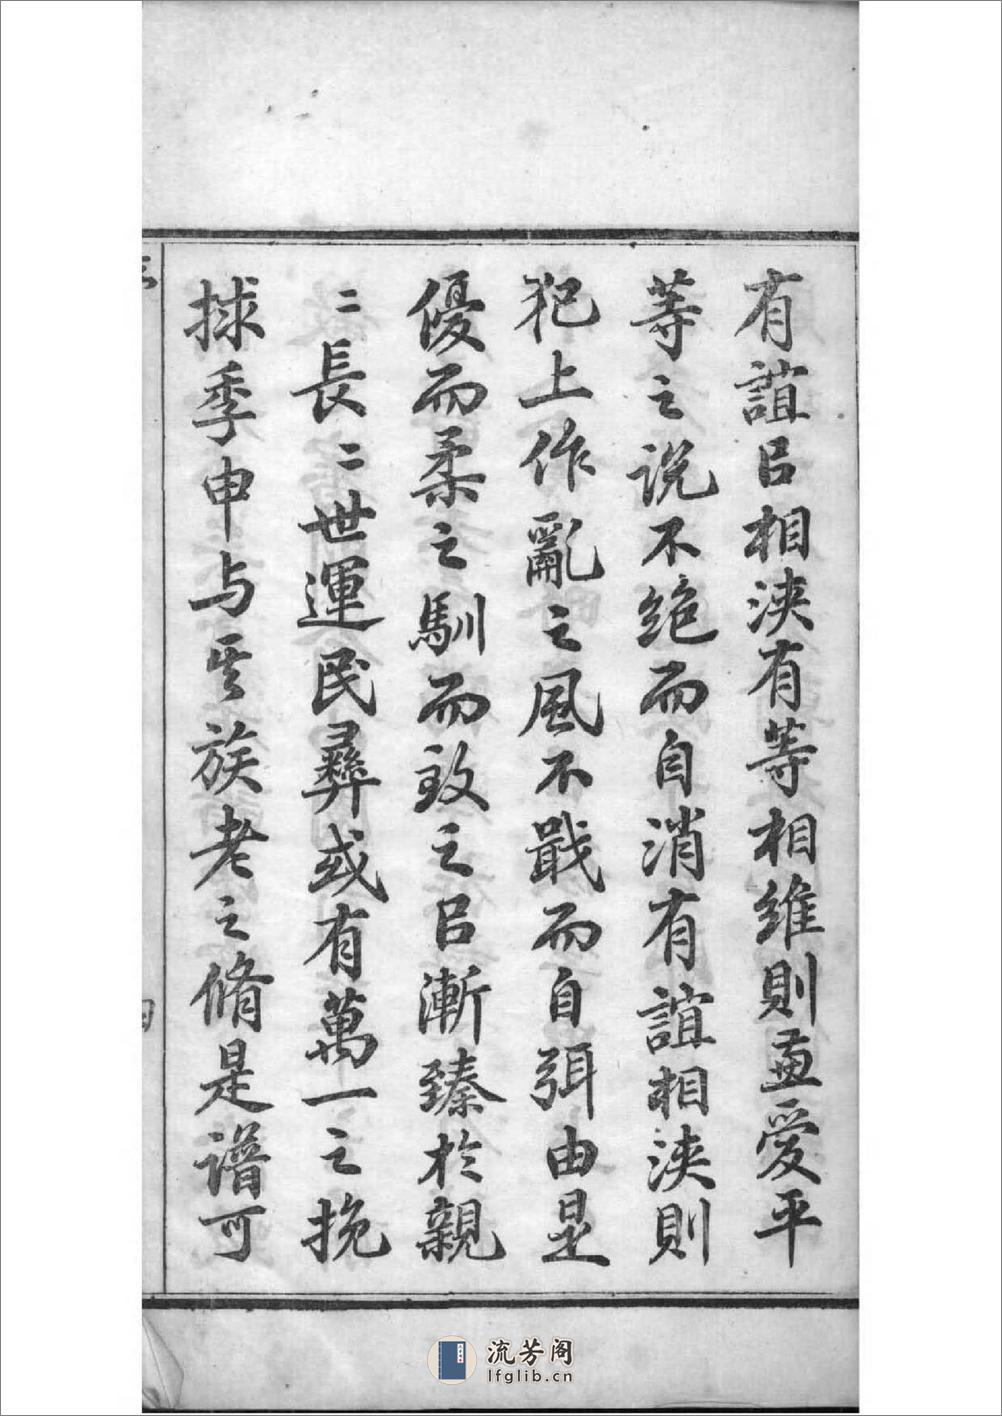 有誼㠯相浹有等相維則兼愛平
等之説不絶而自消有誼相浹則
犯上作亂之風不戢而自弭由是
優而柔之馴而致之㠯漸臻於親
〻長〻世運民彝或有萬一之挽
捄季申与其族老之脩是譜可
流芳阁
lfglib.cn